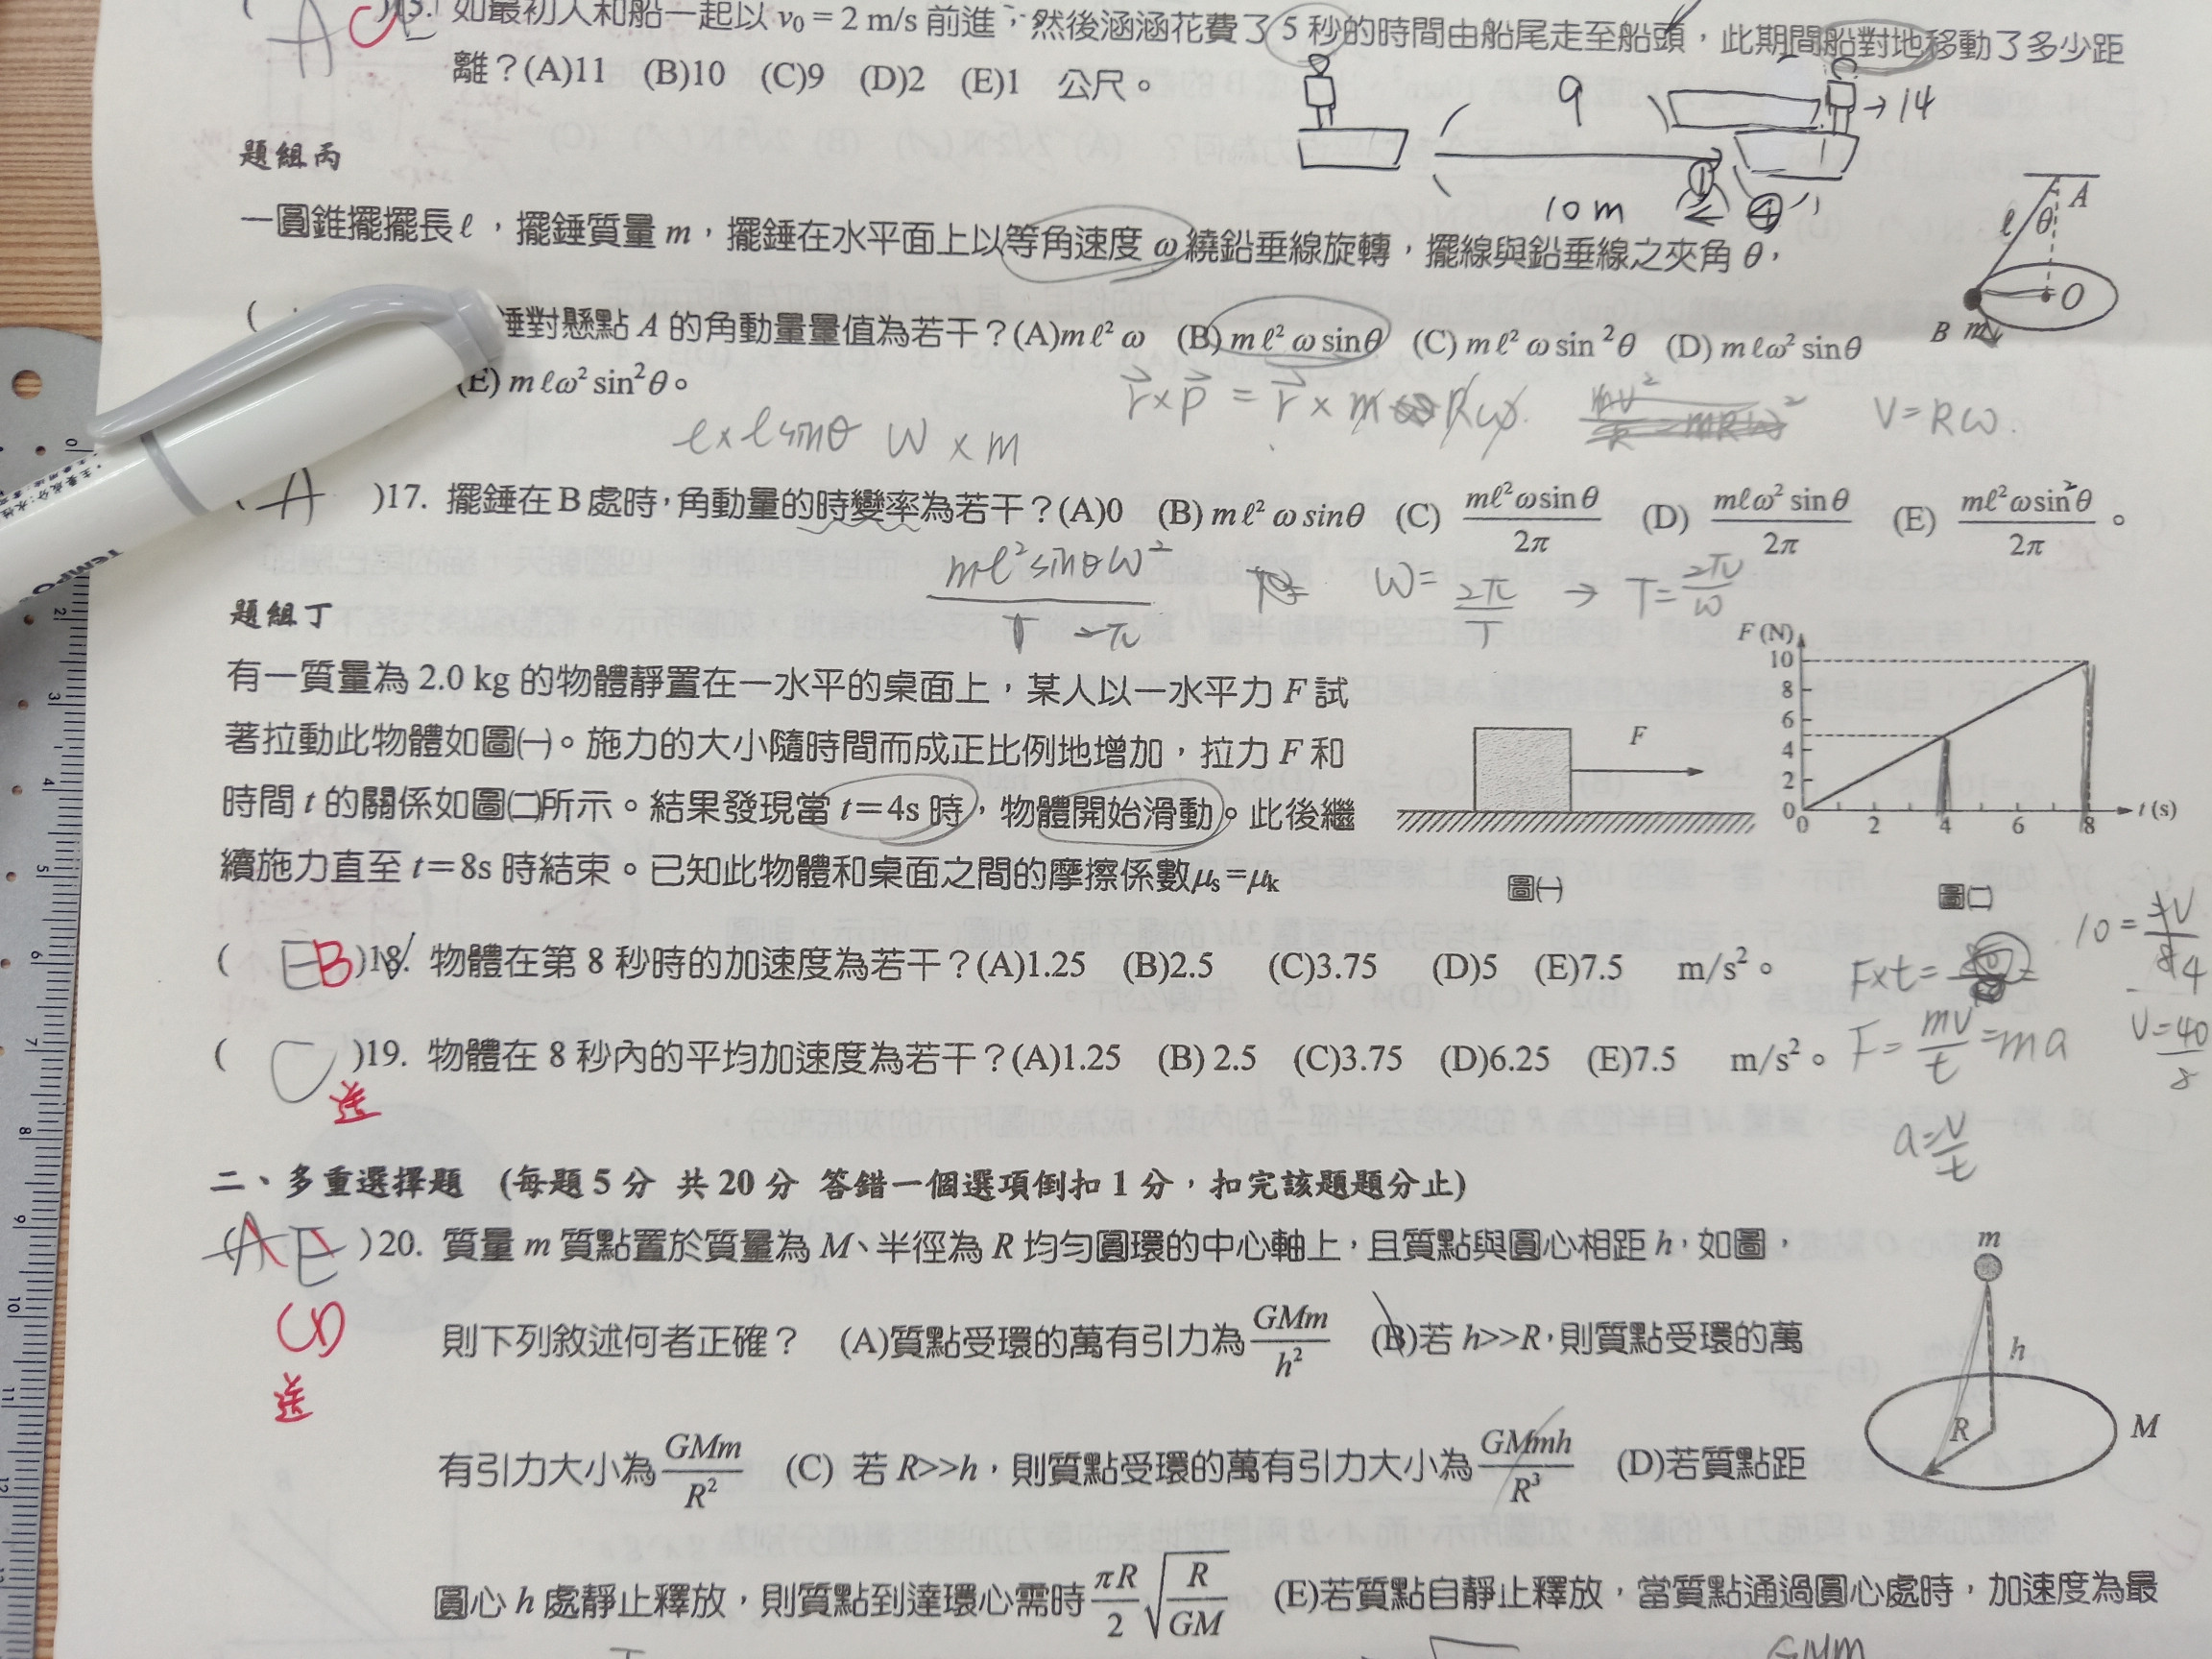 A C )15. 如最初人和船一起以 v₀ = 2 m/s 前進，然後涵涵花費了 5 秒的時間由船尾走至船頭，此期間船對地移動了多少距
離？(A)11 (B)10 (C)9 (D)2 (E)1 公尺。
9
→ 14
10 m
1
4
題組丙
一圓錐擺擺長 ℓ，擺錘質量 m，擺錘在水平面上以等角速度 ω 繞鉛垂線旋轉，擺線與鉛垂線之夾角 θ，
A
ℓ θ
O
B m
(
錘對懸點 A 的角動量量值為若干？(A)mℓ² ω (B) mℓ² ω sinθ (C) mℓ² ω sin²θ (D) mℓω² sinθ
(E) mℓω² sin²θ。
r × p = r × m Rω.
mv²
V = Rω.
ℓ × ℓ sinθ ω × m
( A )17. 擺錘在 B 處時，角動量的時變率為若干？(A)0 (B) mℓ² ω sinθ (C) mℓ²ωsinθ/2π (D) mℓω² sinθ/2π (E) mℓ²ωsin²θ/2π。
mℓ² sinθ ω²
T
ω = 2π/T → T = 2π/ω
題組丁
有一質量為 2.0 kg 的物體靜置在一水平的桌面上，某人以一水平力 F 試
著拉動此物體如圖㈠。施力的大小隨時間而成正比例地增加，拉力 F 和
時間 t 的關係如圖㈡所示。結果發現當 t＝4s 時，物體開始滑動。此後繼
續施力直至 t＝8s 時結束。已知此物體和桌面之間的摩擦係數μs=μk
F
圖㈠
F (N)
10
8
6
4
2
0
0 2 4 6 8 t (s)
圖㈡
( E B )18. 物體在第 8 秒時的加速度為若干？(A)1.25 (B)2.5 (C)3.75 (D)5 (E)7.5 m/s²。
F×t =
( C )19. 物體在 8 秒內的平均加速度為若干？(A)1.25 (B) 2.5 (C)3.75 (D)6.25 (E)7.5 m/s²。
送
F = mv/t = ma
V = 40/8
a = v/t
二、多重選擇題 (每題 5 分 共 20 分 答錯一個選項倒扣 1 分，扣完該題題分止)
(A E )20. 質量 m 質點置於質量為 M、半徑為 R 均勻圓環的中心軸上，且質點與圓心相距 h，如圖，
則下列敘述何者正確？ (A)質點受環的萬有引力為 GMm/h² (B)若 h>>R，則質點受環的萬
有引力大小為 GMm/R² (C) 若 R>>h，則質點受環的萬有引力大小為 GMmh/R³ (D)若質點距
圓心 h 處靜止釋放，則質點到達環心需時 πR/2 √(R/GM) (E)若質點自靜止釋放，當質點通過圓心處時，加速度為最
送
m
h
R
M
GMm